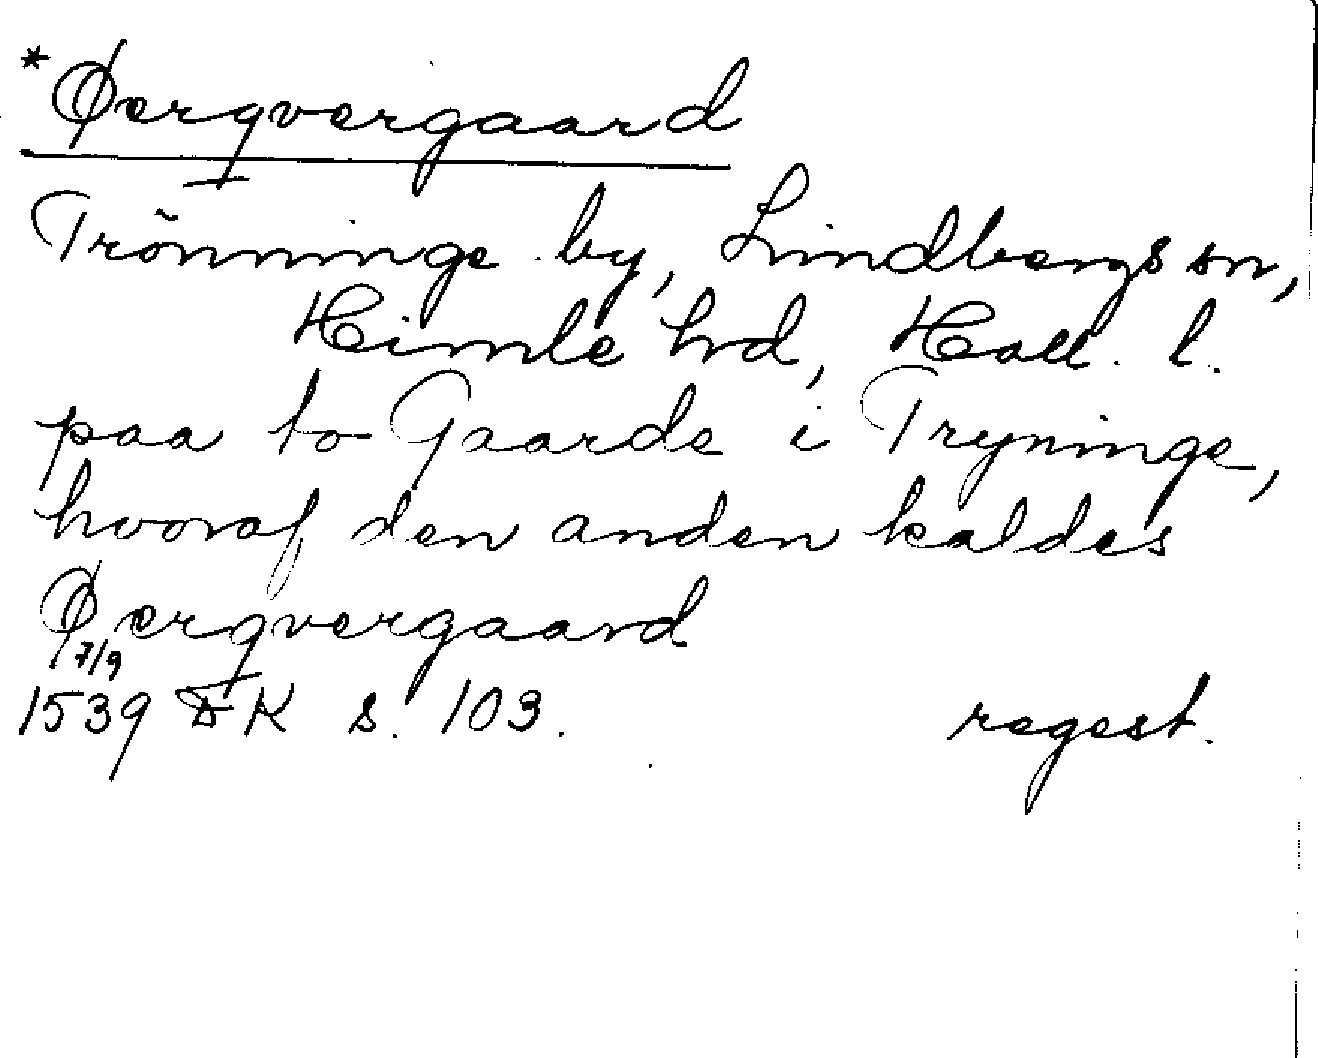 *Øerqvergaard
Trönninge by, Lindbergs sn,
Himle hrd, Hall. l.
paa to Gaarde i Tryninge,
hvoraf den anden kaldes
Øerqvergaard
7/9
1539 DK s. 103. regest.